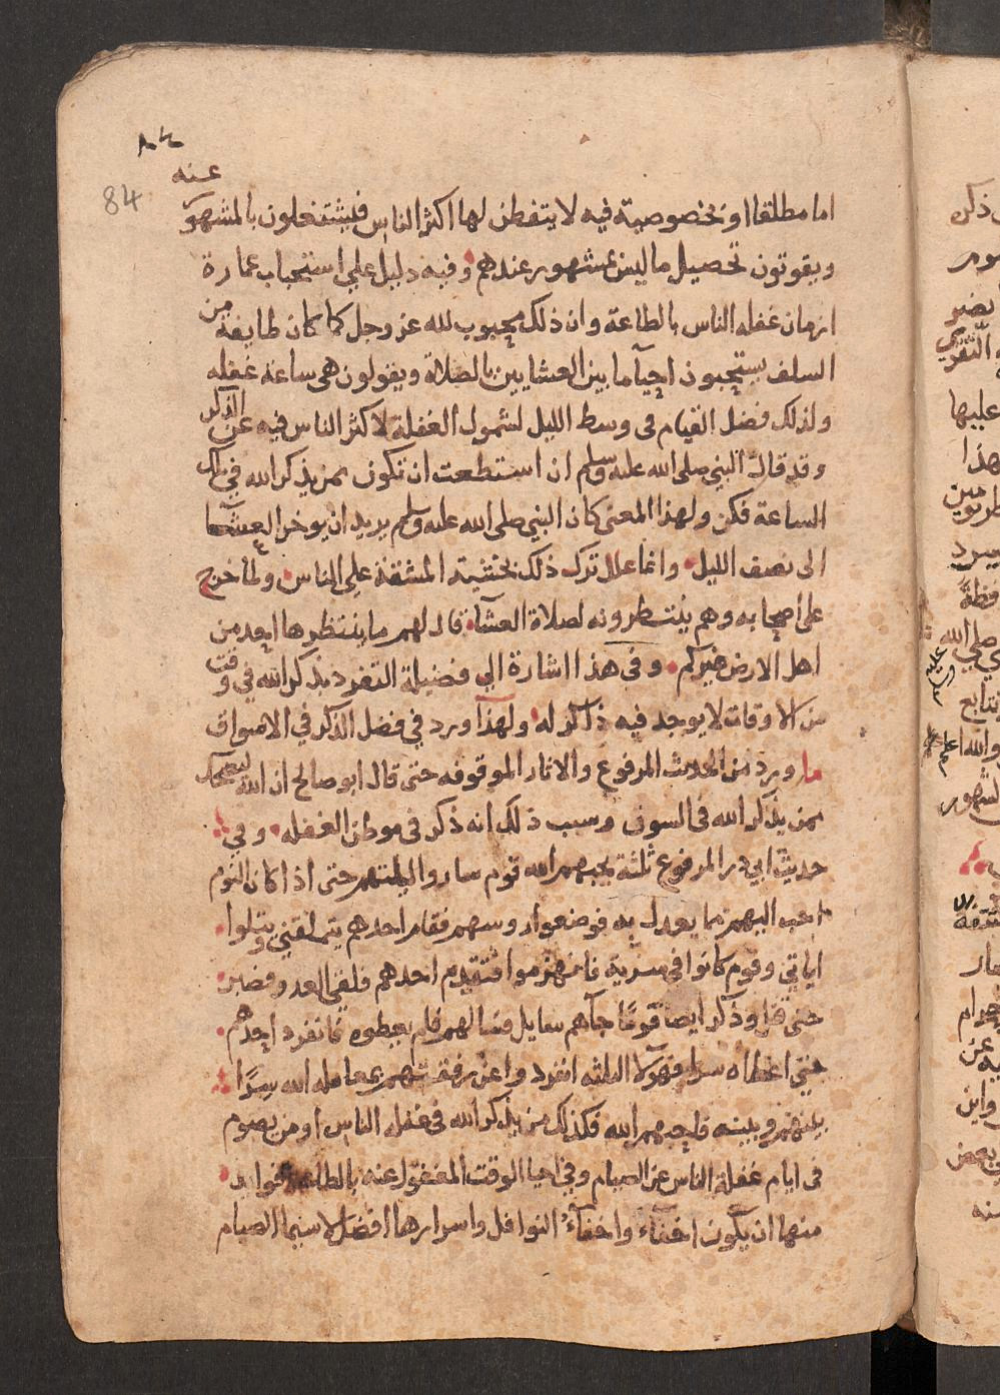 ٨٤
84
عنه
اما مطلقا او بخصوصية فيه لا يتفطن لها اكثر الناس فيشتغلون بالمشهور
ويفوتون تحصيل ما ليس بمشهور عندهم وفيه دليل علي استحباب عمارة
ازمان غفله الناس بالطاعة وان ذلك محبوب لله عز وجل كما كان طايفة من
السلف يستحبون احيآ ما بين العشايين بالصلاة ويقولون هى ساعة غفله
ولذلك فضل القيام فى وسط الليل لشمول الغفلة لاكثر الناس فيه عن الذكر
وقد قال النبي صلى الله عليه وسلم ان استطعت ان تكون ممن يذكر الله في تلك
الساعة فكن ولهذا المعنى كان النبي صلى الله عليه وسلم يريد ان يوخر العشآ
الى نصف الليل وانما علل ترك ذلك بخشية المشقة علي الناس ولما خرج
على اصحابه وهم ينتظرونه لصلاة العشآء قال لهم ما ينتظرها احد من
اهل الارض غيركم وفى هذا اشارة الي فضيلة التفرد بذكر الله في وقت
من الاوقات لا يوجد فيه ذاكر له ولهذا ورد في فضل الذكر في الاسواق
ما ورد من الحديث المرفوع والاثار الموقوفه حتى قال ابو صالح ان الله ليضحك
ممن يذكر الله فى السوق وسبب ذلك انه ذكر فى موطن الغفله وفي
حديث ابي ذر المرفوع ثلثة يحبهم الله قوم ساروا ليلتهم حتى اذا كان النوم
احب اليهم مما يعدل به فوضعوا روسهم فقام احدهم يتملقني ويتلوا
اياتي وقوم كانوا في سرية فانهزموا فتقدم احدهم فلقي العدو فصبر
حتى قتل وذكر ايضا قومًا جآهم سايل فسالهم فلم يعطوه فانفرد احدهم
حتى اعطاه سرا فهولا الثلثه انفردوا عن رفقتهم بمعامله الله سرًا
بينهم وبينه فاحبهم الله فكذلك من يذكر الله فى غفله الناس او من يصوم
فى ايام غفلة الناس عن الصيام وفي احيا الوقت المغفول عنه بالطاعة فوايد
منها ان يكون اخفآء واخفآء النوافل واسرارها افضل لا سيما الصيام